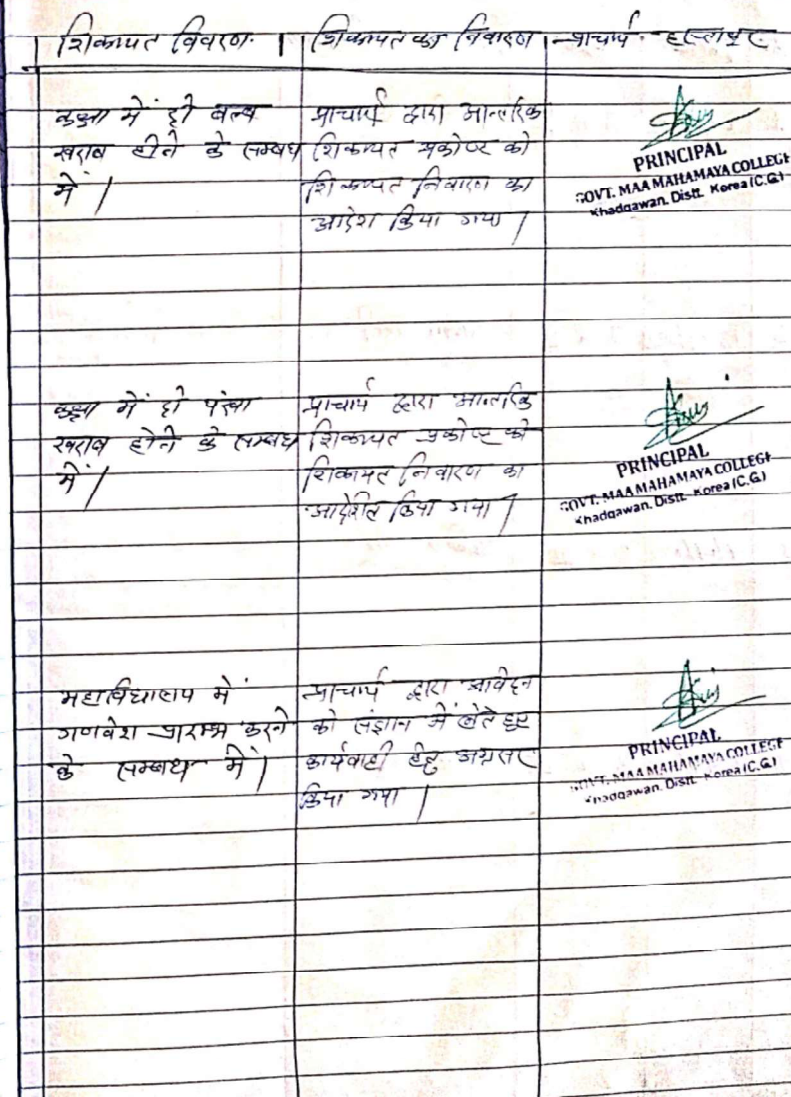 शिकायत विवरण
शिकायत का निवारण
प्राचार्य हस्ताक्षर
कक्षा में दो बल्ब
खराब होने के सम्बध
में |
प्राचार्य द्वारा आन्तरिक
शिकायत प्रकोष्ट को
शिकायत निवारण का
आदेश किया गया |
PRINCIPAL
GOVT. MAA MAHAMAYA COLLEGE
Khadgawan. Distt. Korea (C.G.)
कक्षा में दो पंखा
खराब होने के सम्बध
में |
प्राचार्य द्वारा आन्तरिक
शिकायत प्रकोष्ट को
शिकायत निवारण का
आदेशित किया गया |
PRINCIPAL
GOVT. MAA MAHAMAYA COLLEGE
Khadgawan. Distt. Korea (C.G.)
महाविद्यालय में
गणवेश प्रारम्भ करने
के सम्बध में |
प्राचार्य द्वारा आवेदन
को संज्ञान में लेते हुए
कार्यवाही हेतु अग्रसर
किया गया |
PRINCIPAL
GOVT. MAA MAHAMAYA COLLEGE
Khadgawan. Distt. Korea (C.G.)